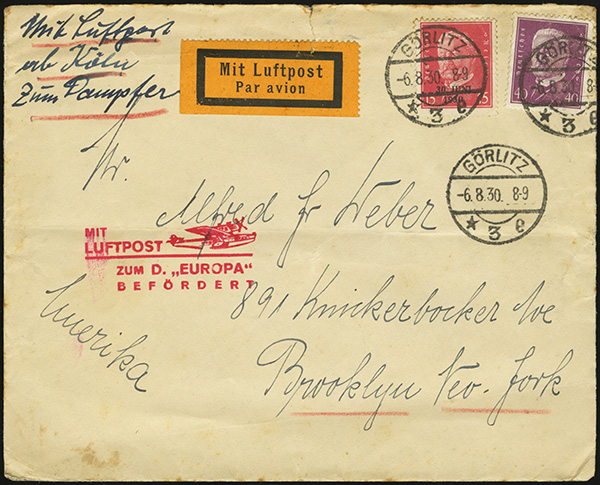 Mit Luftpost
ab Köln
zum Dampfer
Mit Luftpost
Par avion
GÖRLITZ
-6.8.30. 8-9
* 3 e
15
30. JUNI
1930
GÖRLITZ
-6.8.30. 8-9
* 3 e
40 40
GÖRLITZ
-6.8.30. 8-9
* 3 e
Mr.
Alfred Jr Weber
MIT
LUFTPOST
ZUM D. „EUROPA"
BEFÖRDERT
891 Knickerbocker Ave
Amerika
Brooklyn Neo-York